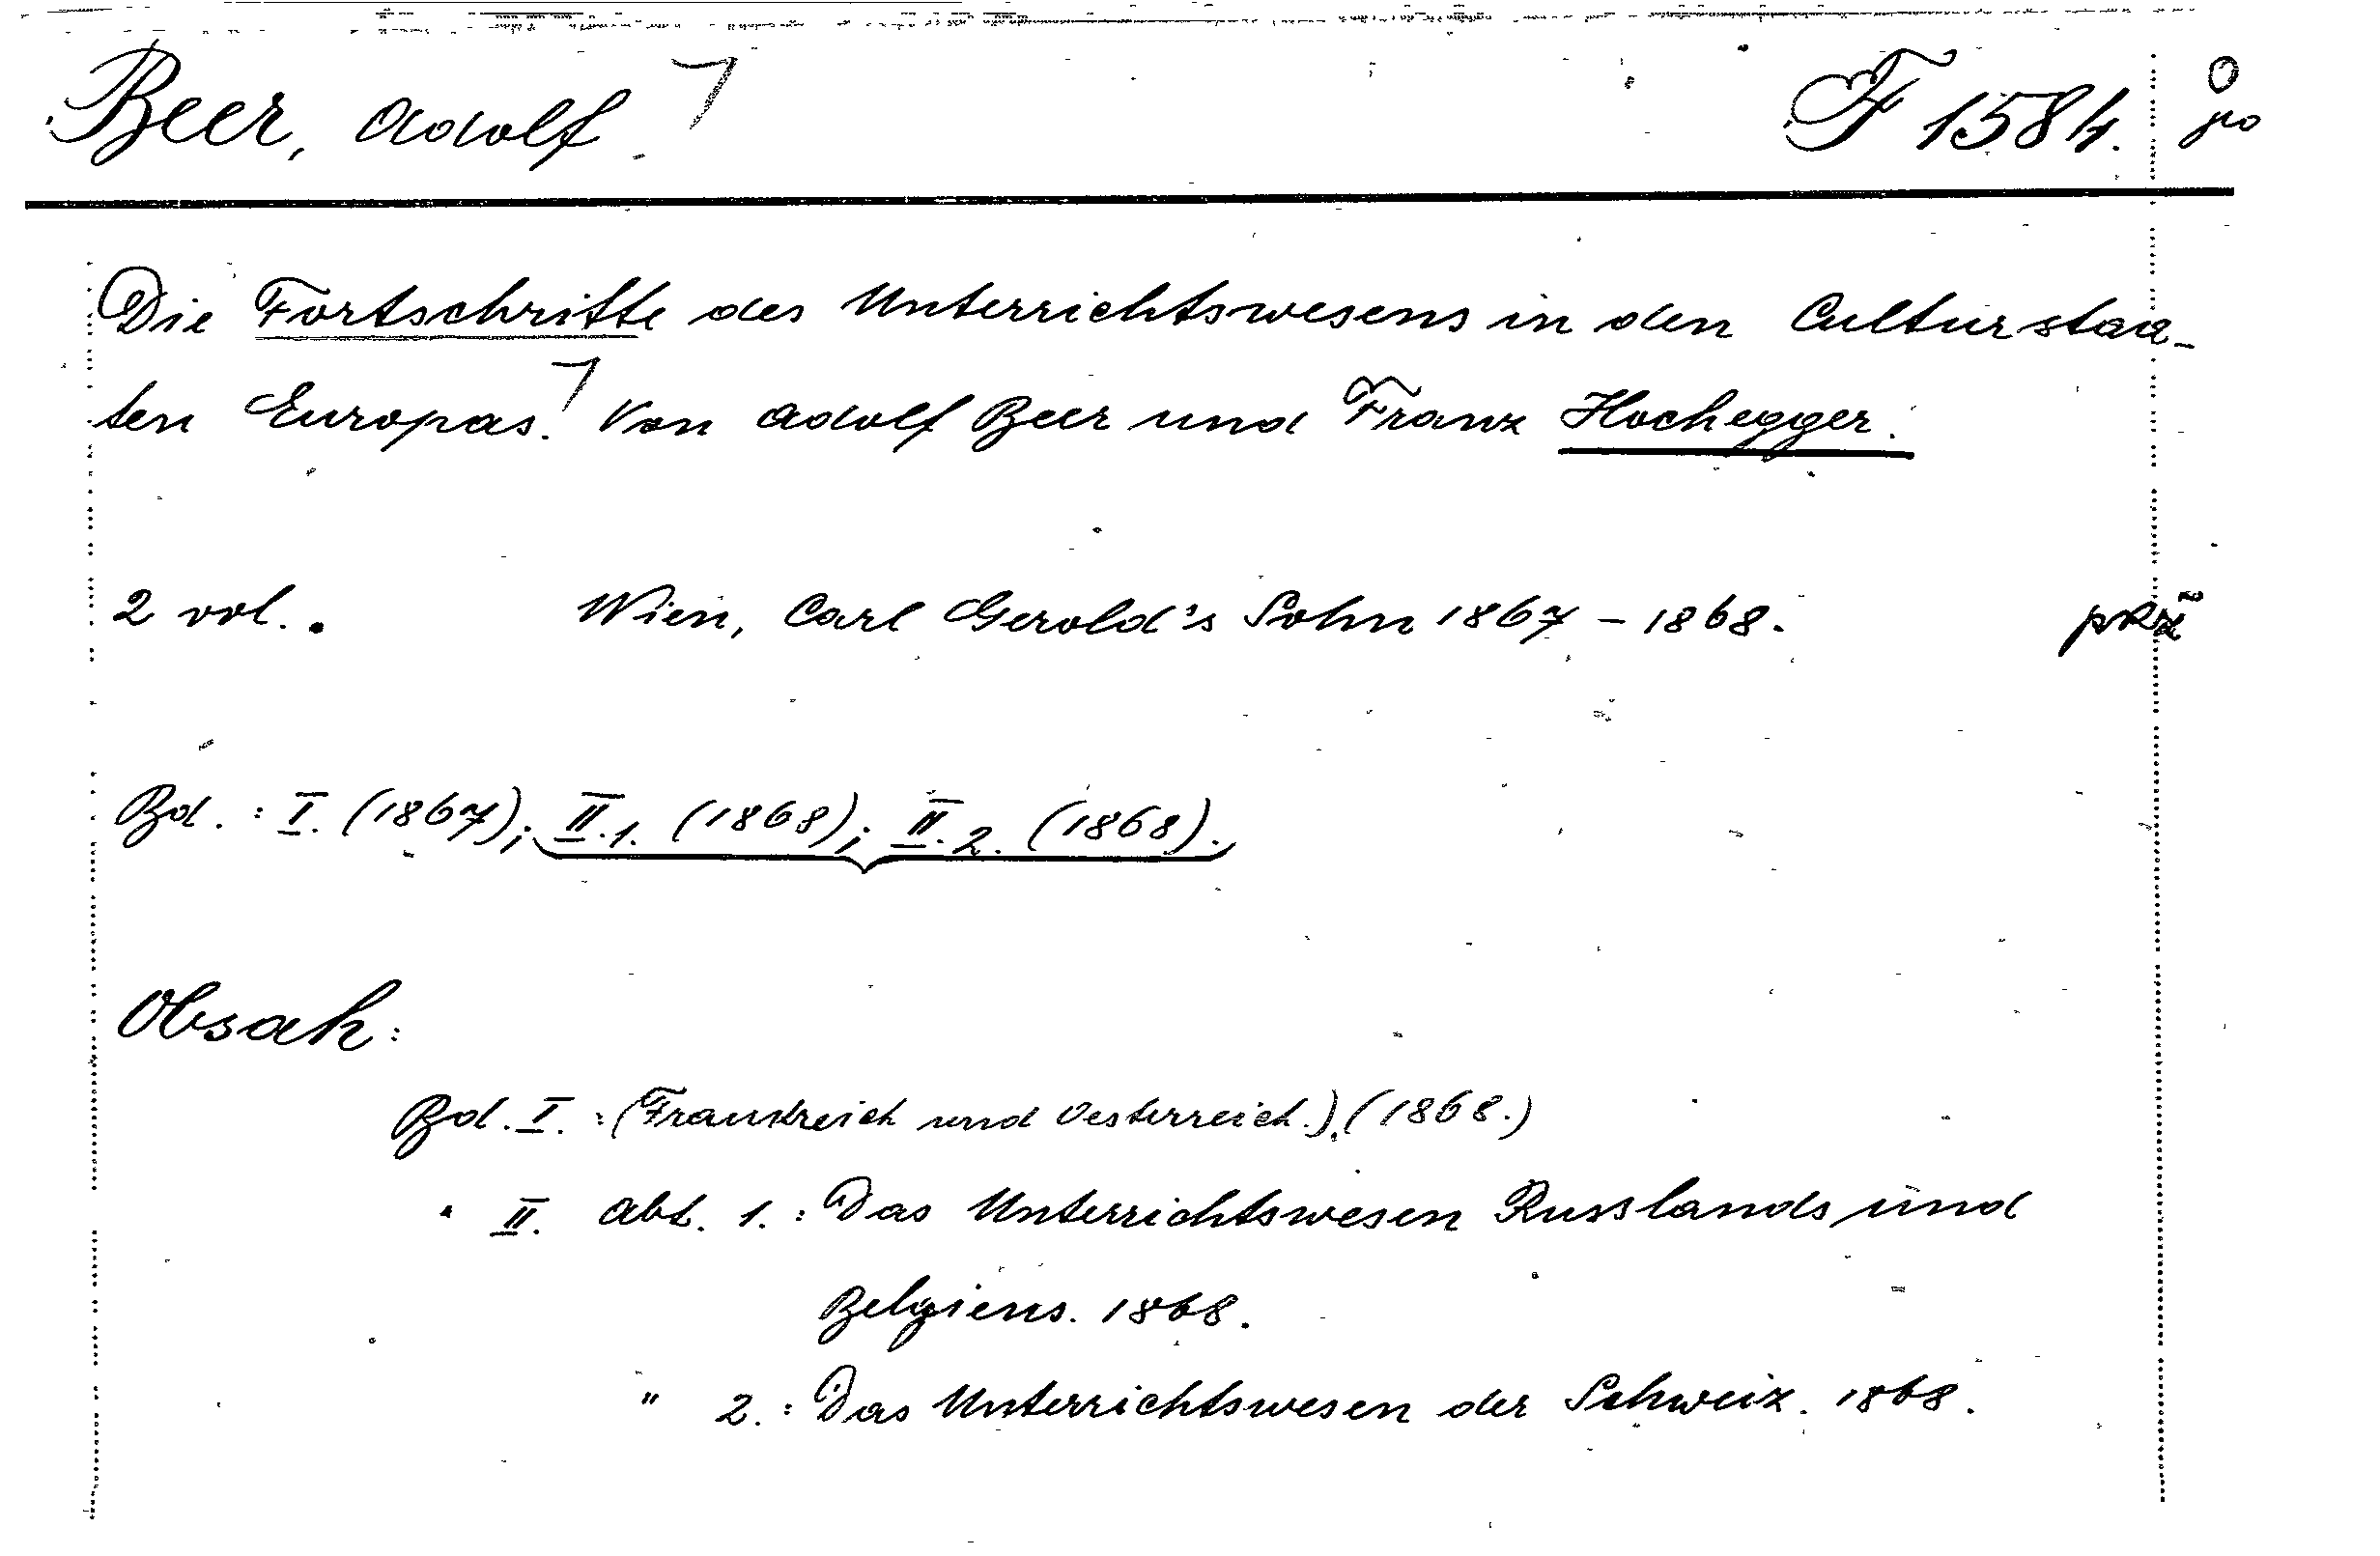 Beer, Adolf. F 1584.
Die Fortschritte des Unterrichtswesens in den Culturstaa-
ten Europas. Von Adolf Beer und Franz Hochegger.
2 vol. Wien, Carl Gerold's Sohn 1867 - 1868.
Bd. : I. (1867); II.1. (1868); II.2. (1868).
Obsah:
Bd. I. : (Frankreich und Oesterreich.). (1868.)
" II. Abt. 1. : Das Unterrichtswesen Russlands und
Belgiens. 1868.
" 2. : Das Unterrichtswesen der Schweiz. 1868.